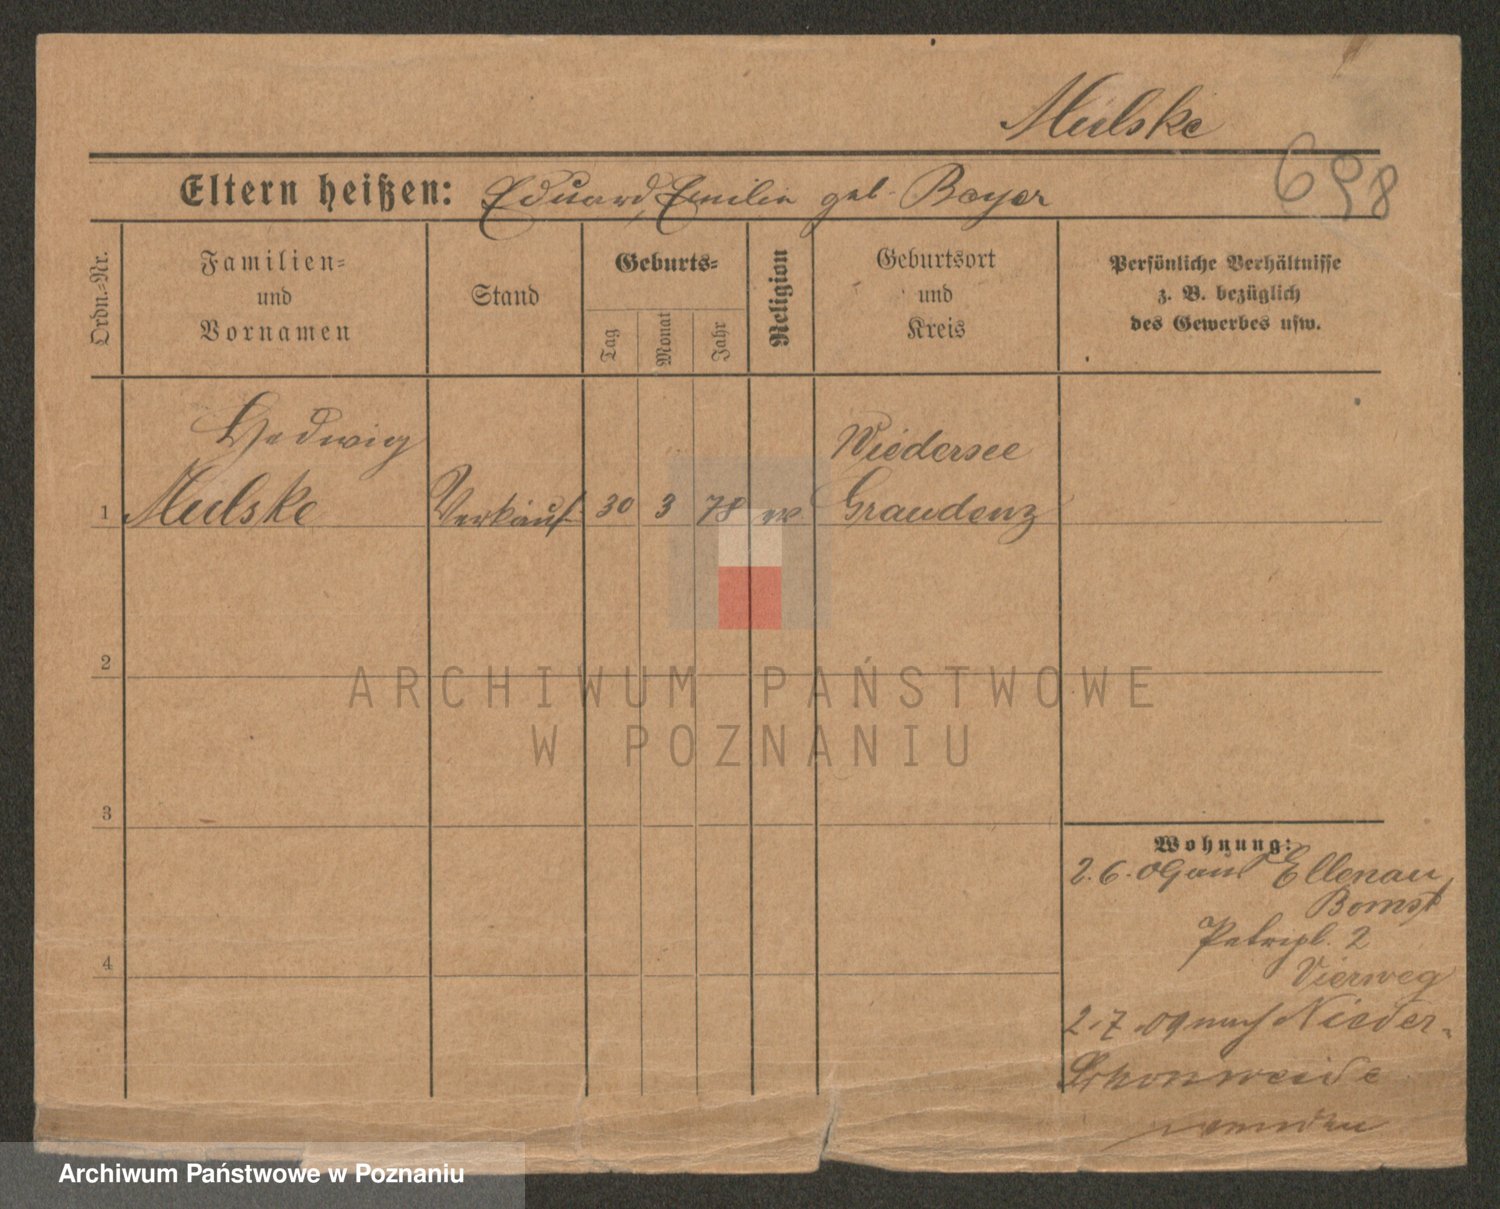 Mulske
698
Eltern heißen: Eduard, Emilie geb. Beyer
Ordn.-Nr.
Familien-
und
Vornamen
Stand
Geburts-
Tag
Monat
Jahr
Religion
Geburtsort
und
Kreis
Persönliche Verhältnisse
z. B. bezüglich
des Gewerbes usw.
Hedwig
Wiedersee
1 Mulske Verkäuf. 30 3 78 ev Graudenz
2
3
4
Wohnung:
2.6.09 aus Ellenau
Bomst
2
Vierweg
2.7.09 nach Nieder-
Schonweide
ARCHIWUM PAŃSTWOWE
W POZNANIU
Archiwum Państwowe w Poznaniu